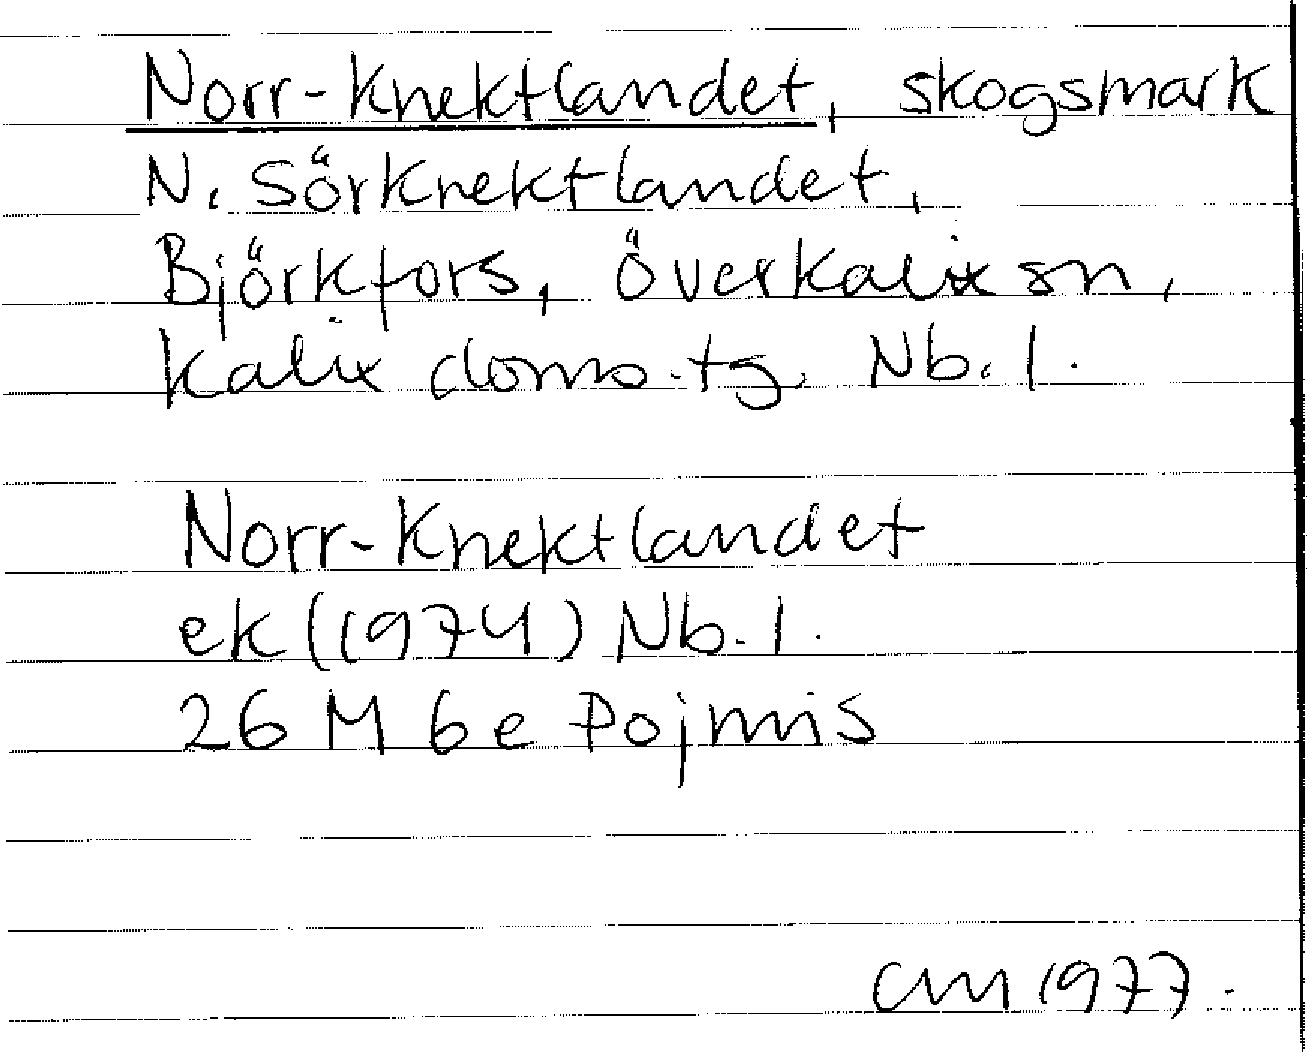 Norr-Knektlandet, skogsmark
N. Sörknektlandet,
Björkfors, Överkalix sn,
Kalix doms.tg. Nb.l.
Norr-Knektlandet
ek (1974) Nb.l.
26 M 6e Pojmis
CM 1977.